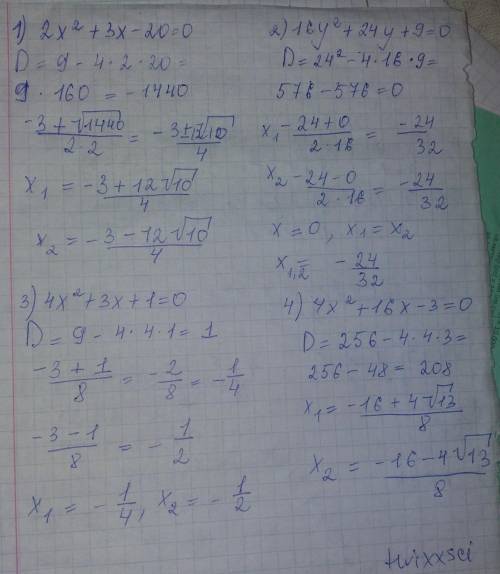 1) 2x² + 3x - 20 = 0
D = 9 - 4 · 2 · 20 =
9 · 160 = - 1440
-3 + √1440 / 2 · 2 = -3 ± 12√10 / 4
x₁ = -3 + 12√10 / 4
x₂ = -3 - 12√10 / 4
2) 16y² + 24y + 9 = 0
D = 24² - 4 · 16 · 9 =
576 - 576 = 0
x₁ -24 + 0 / 2 · 16 = -24 / 32
x₂ -24 - 0 / 2 · 16 = -24 / 32
x = 0, x₁ = x₂
x₁,₂ = - 24 / 32
3) 4x² + 3x + 1 = 0
D = 9 - 4 · 4 · 1 = 1
-3 + 1 / 8 = - 2 / 8 = - 1 / 4
-3 - 1 / 8 = - 1 / 2
x₁ = - 1 / 4, x₂ = - 1 / 2
4) 4x² + 16x - 3 = 0
D = 256 - 4 · 4 · 3 =
256 - 48 = 208
x₁ = -16 + 4√13 / 8
x₂ = -16 - 4√13 / 8
twixxsci